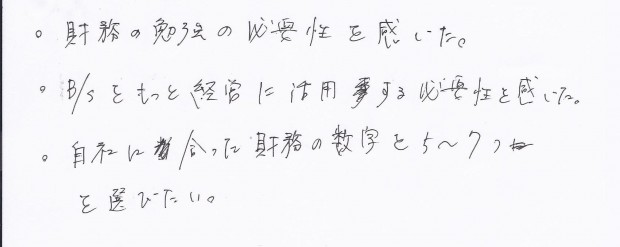 。財務の勉強の必要性を感いた。
。B/sをもっと経営に活用する必要性を感いた。
。自社に合った財務の数字を5〜7つ
を選びたい。